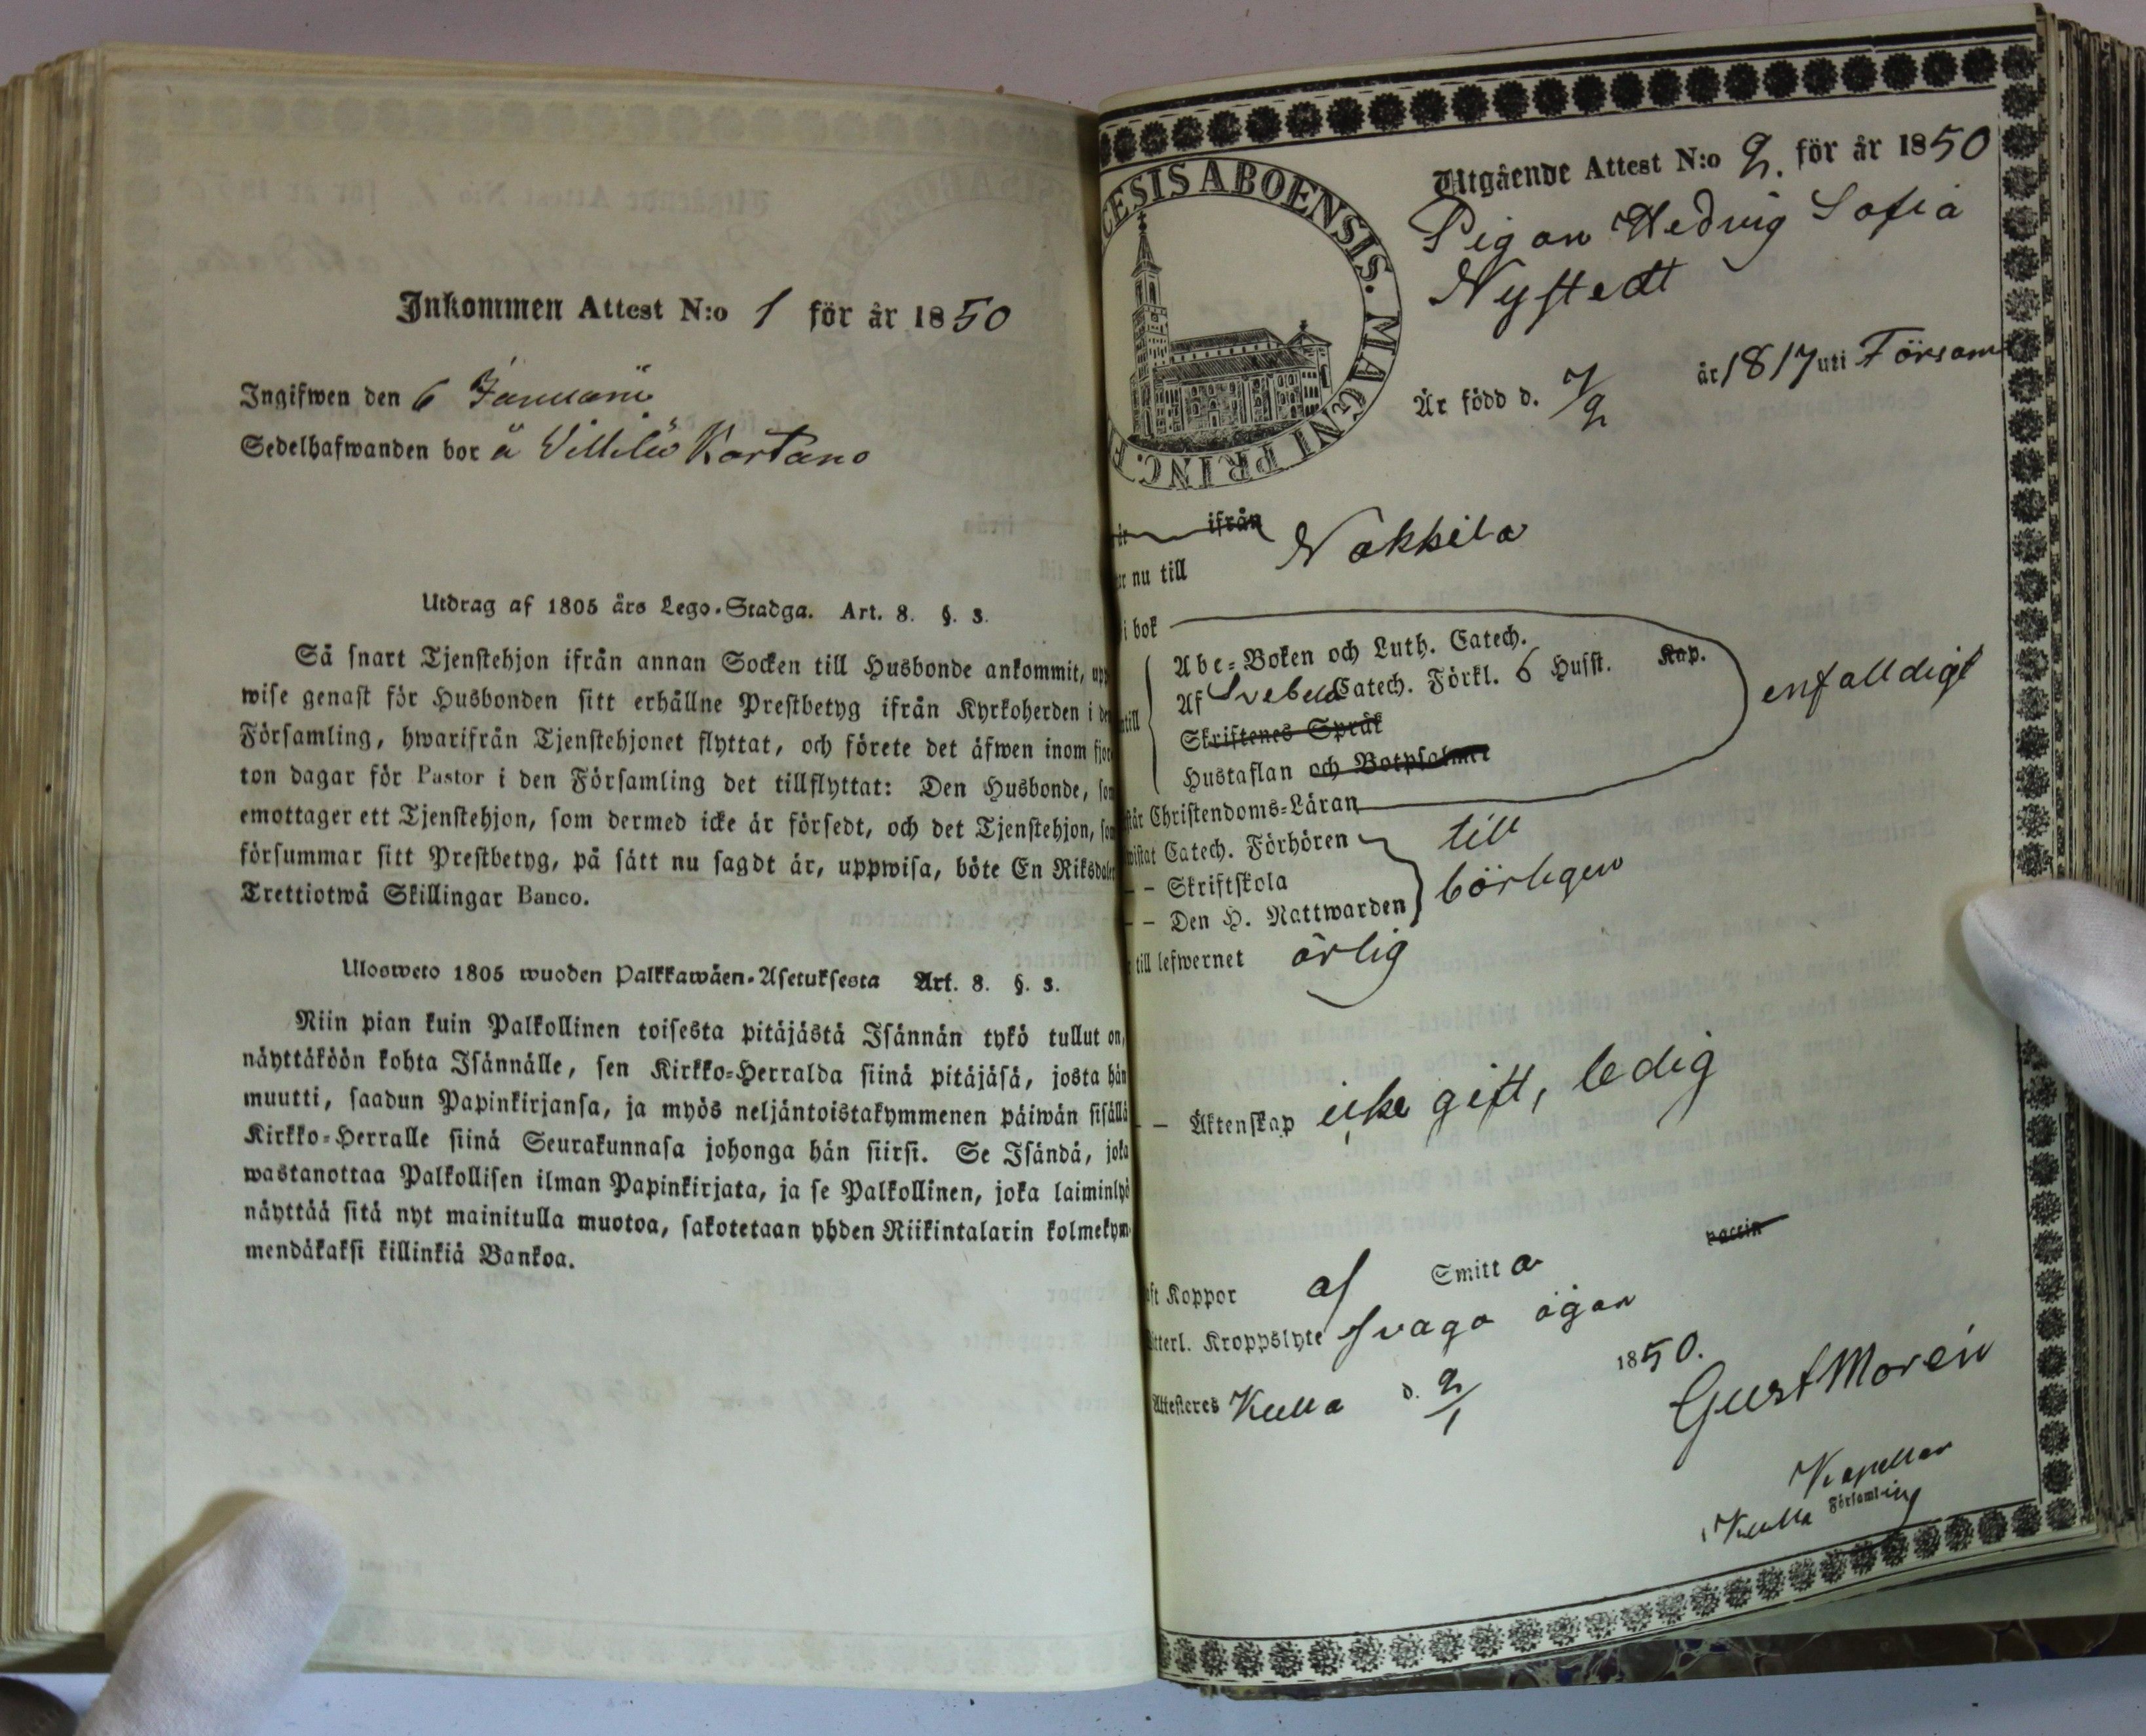 Inkommen Attest N:o 1 för år 1850
Ingifwen den 6 Januarii
Sedelhafwanden bor å Villilä Kartano
Utdrag af 1805 års Lego-Stadga. Art. 8. §. 3.
Så snart Tjenstehjon ifrån annan Socken till Husbonde ankommit, upp
wise genast för Husbonden sitt erhållne Prestbetyg ifrån Kyrkoherden i den
Församling, hwarifrån Tjenstehjonet flyttat, och förete det äfwen inom fjor
ton dagar för Pastor i den Församling det tillflyttat: Den Husbonde, som
emottager ett Tjenstehjon, som dermed icke är försedt, och det Tjenstehjon, som
försummar sitt Prestbetyg, på sätt nu sagdt är, uppwisa, böte En Riksdaler
Trettiotwå Skillingar Banco.
Ulosweto 1805 wuoden Palkkawäen-Asetuksesta Art. 8. §. 3.
Niin pian kuin Palkollinen toisesta pitäjästä Isännän tykö tullut on,
näyttäköön kohta Isännälle, sen Kirkko-Herralda siinä pitäjäsä, josta hän
muutti, saadun Papinkirjansa, ja myös neljäntoistakymmenen päiwän sisällä
Kirkko-Herralle siinä Seurakunnasa johonga hän siirsi. Se Isändä, joka
wastanottaa Palkollisen ilman Papinkirjata, ja se Palkollinen, joka laiminlyö
näyttää sitä nyt mainitulla muotoa, sakotetaan yhden Riikintalarin kolmekym-
mendäkaksi killinkiä Bankoa.
CESIS ABOENSIS. MAGNI PRINC. F
Utgående Attest N:o 2. för år 1850
Pigan Hedvig Sofia
Nystedt
Är född d. 7/9 år 1817 uti Försam
ifrån
nu till Nakkila
i bok
Abc-Boken och Luth. Catech.
Af Svebelii Catech. Förkl. 6 Husst. Kap.
Skriftenes Språk
Hustaflan och Botpsalmer
enfalldigt
Christendoms-Läran
Catech. Förhören
– – Skriftskola
– – Den H. Nattwarden
till
börligen
till lefwernet ärlig
– – Äktenskap icke gift, ledig
Koppor af Smitta vaccin
Kroppslyte svaga ögon
Attesteres Kulla d. 2/1 1850.
Gust Morén
Kapellan
i Kulla Församling